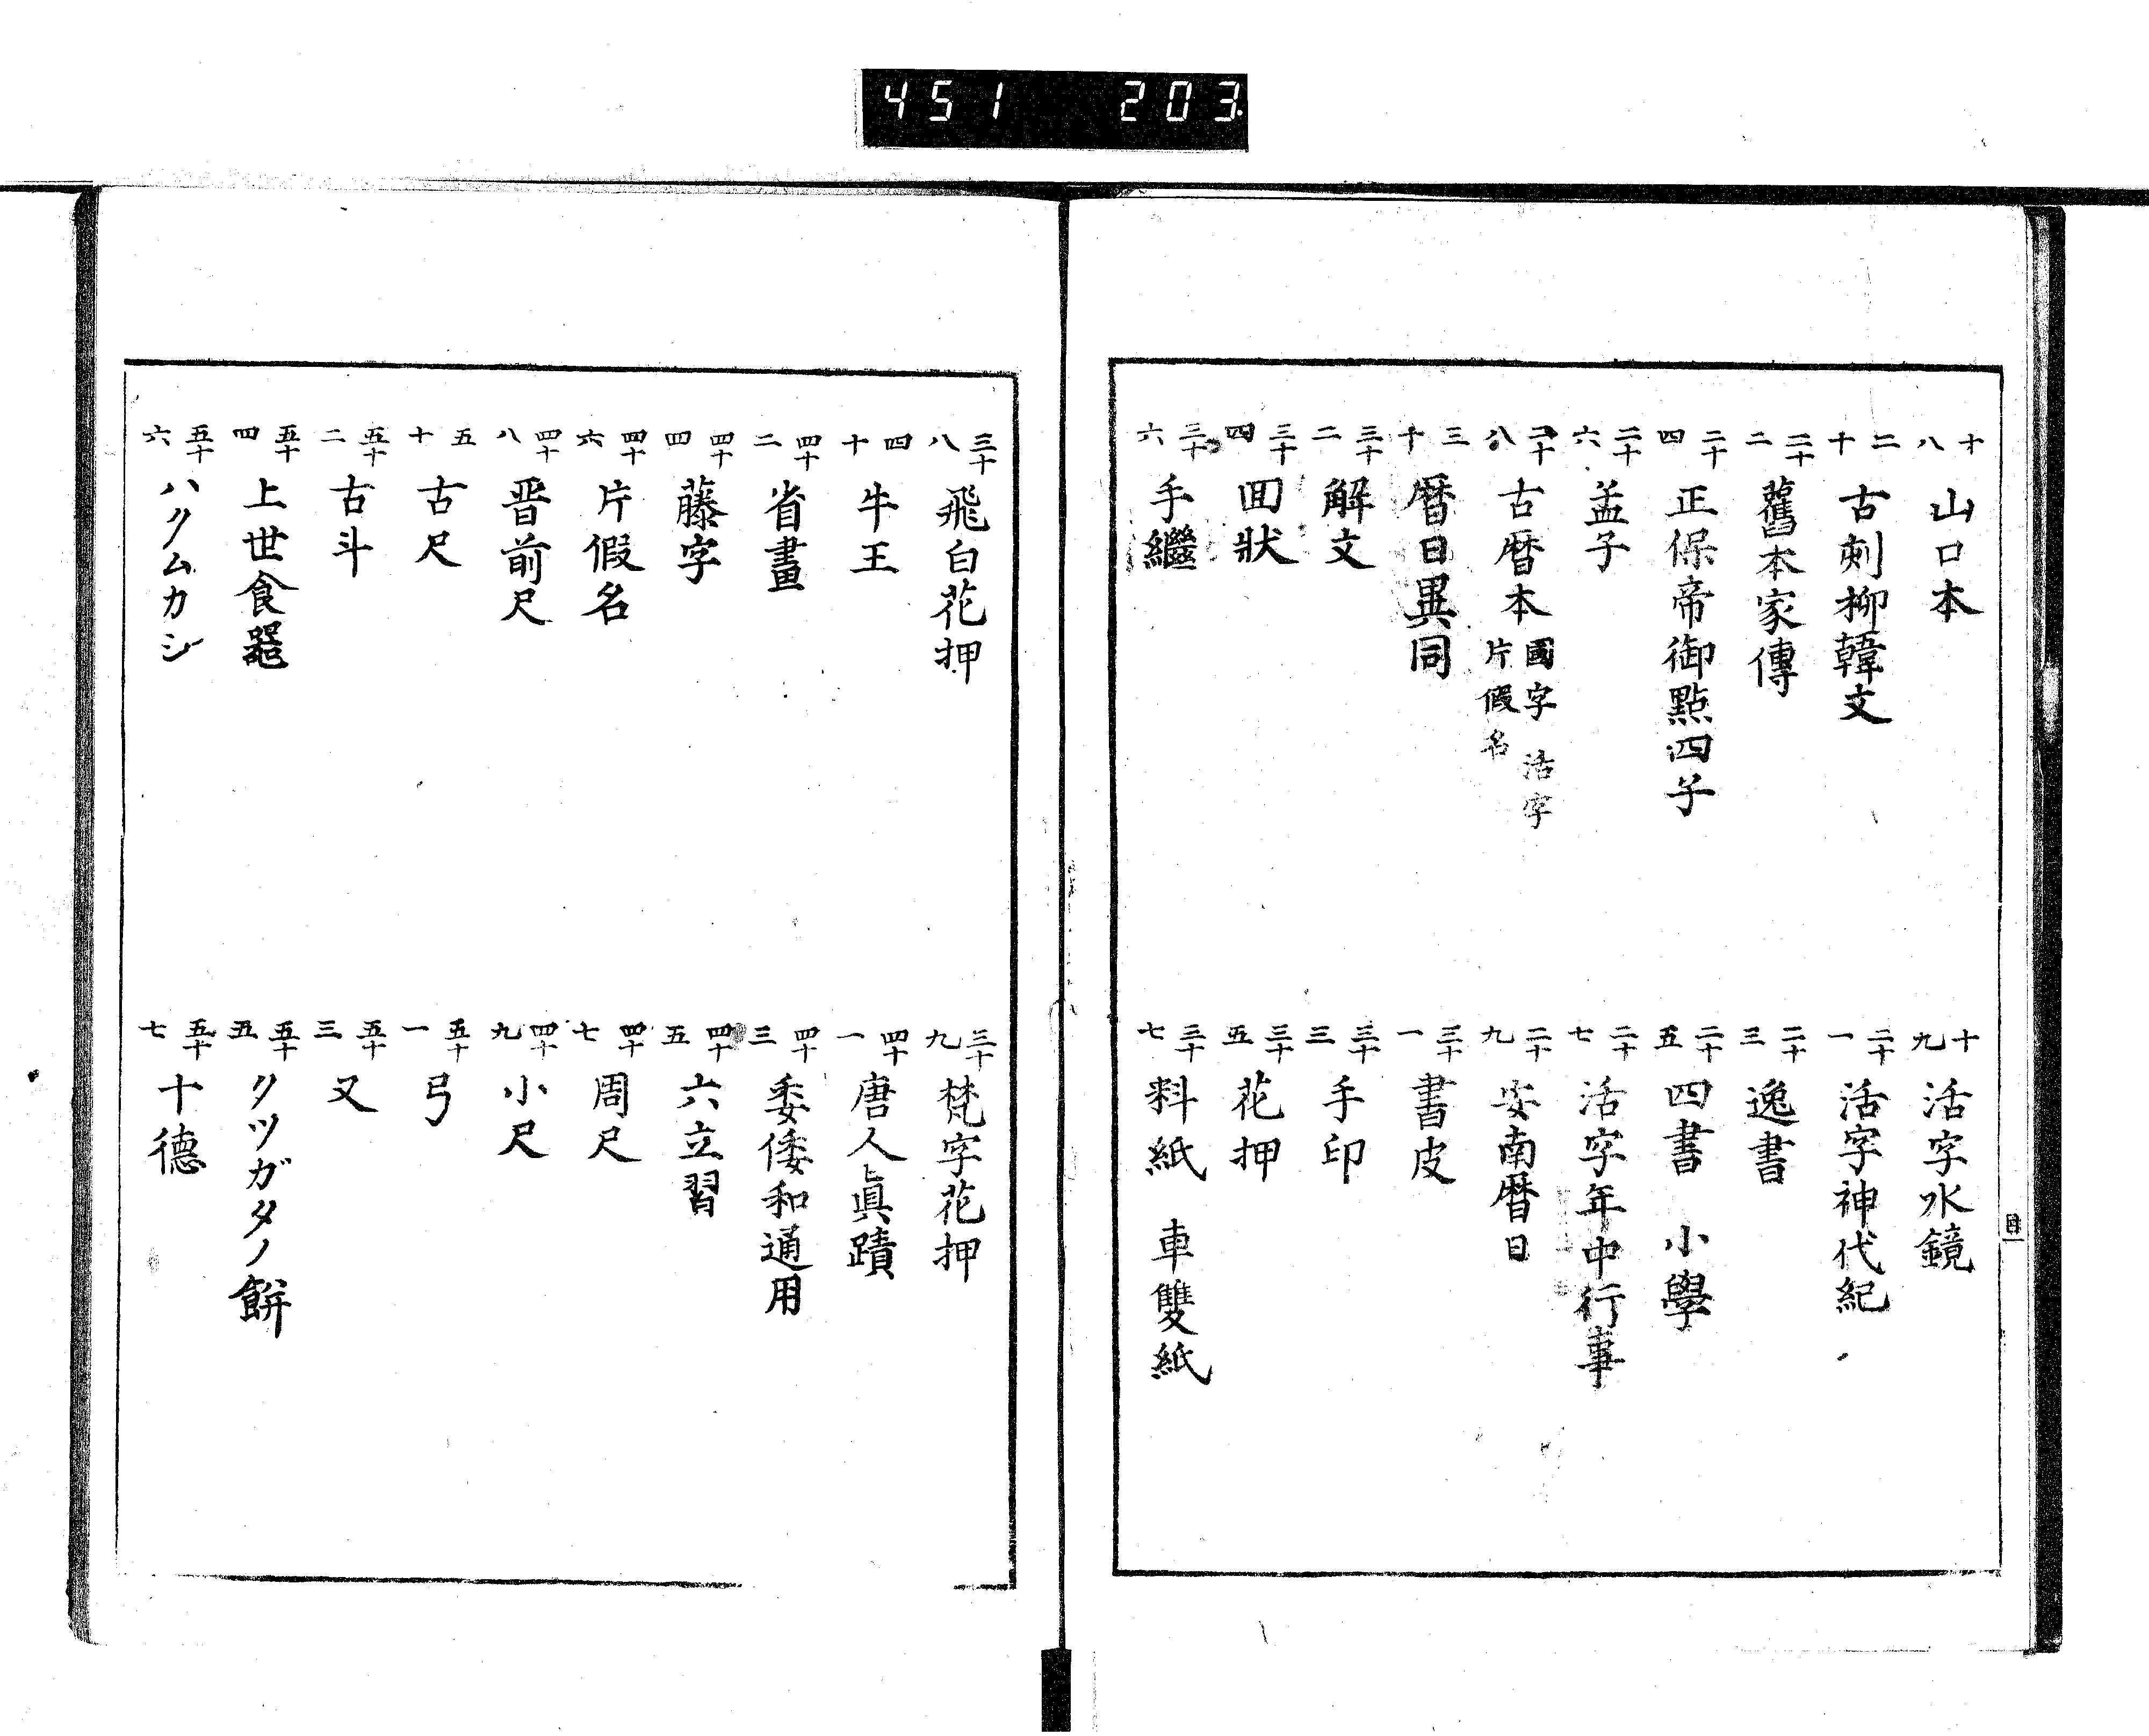 451 203
十八 山口本
十九 活字水鏡
二十 古刻柳韓文
二十一 活字神代紀
二十二 舊本家傳
二十三 逸書
二十四 正保帝御點四子
二十五 四書 小學
二十六 孟子
二十七 活字年中行事
二十八 古暦本 國字 活字 片假名
二十九 安南暦日
三十 暦日異同
三十一 書皮
三十二 解文
三十三 手印
三十四 回狀
三十五 花押
三十六 手繼
三十七 料紙 車雙紙
目一
三十八 飛白花押
三十九 梵字花押
四十 牛王
四十一 唐人眞蹟
四十二 省畫
四十三 委倭和通用
四十四 藤字
四十五 六立習
四十六 片假名
四十七 周尺
四十八 晋前尺
四十九 小尺
五十 古尺
五十一 弓
五十二 古斗
五十三 又
五十四 上世食器
五十五 クツガタノ餅
五十六 ハクムカシ
五十七 十德